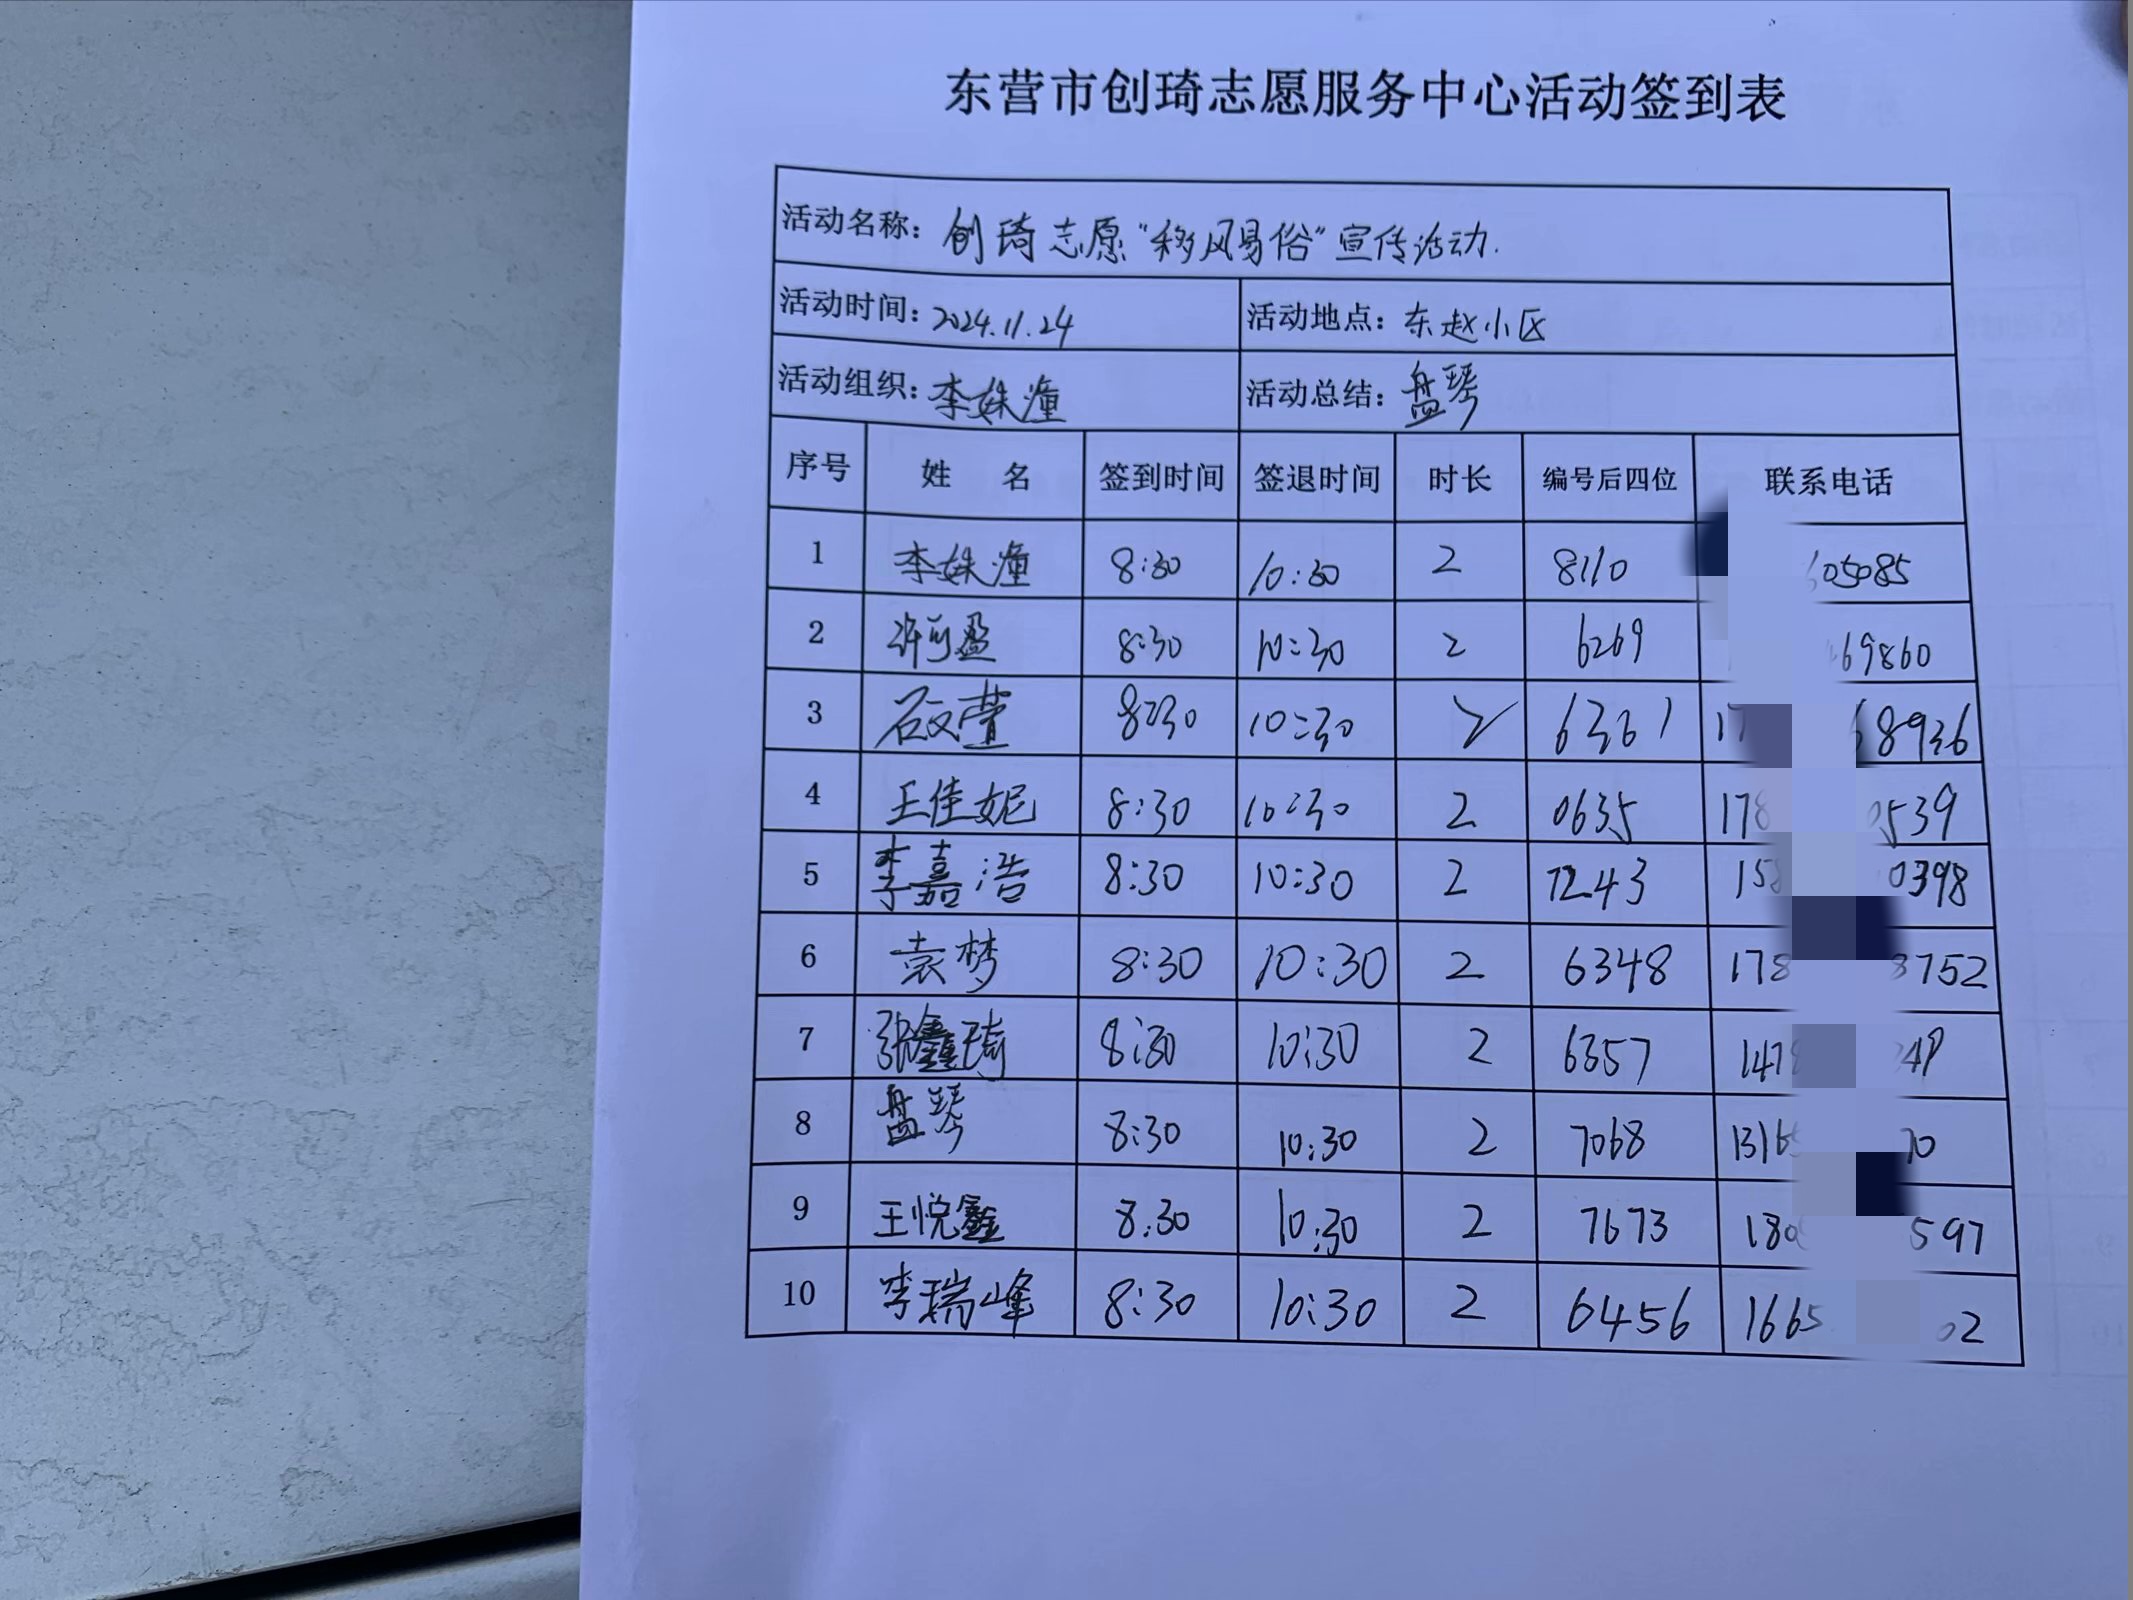 东营市创琦志愿服务中心活动签到表
活动名称：创琦志愿“移风易俗”宣传活动.
活动时间：2024.11.24 活动地点：东赵小区
活动组织：李姝潼 活动总结：盘琴
序号 姓 名 签到时间 签退时间 时长 编号后四位 联系电话
1 李姝潼 8:30 10:30 2 8110 05085
2 许可盈 8:30 10:30 2 6269 69860
3 石文萱 8:30 10:30 2 6361 17 68936
4 王佳妮 8:30 10:30 2 0635 178 0539
5 李嘉浩 8:30 10:30 2 7243 158 0398
6 袁梦 8:30 10:30 2 6348 178 8752
7 张鑫琦 8:30 10:30 2 6357 147 49
8 盘琴 8:30 10:30 2 7068 1316 70
9 王悦鑫 8:30 10:30 2 7673 180 597
10 李瑞峰 8:30 10:30 2 6456 1665 02